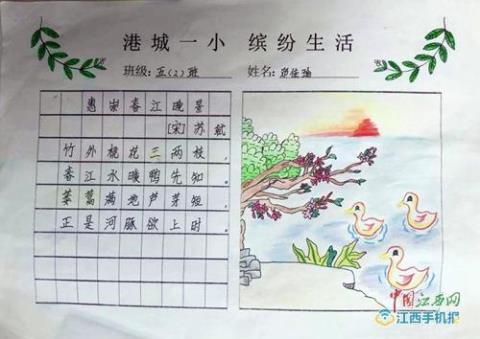 港城一小 缤纷生活
班级：五（2）班 姓名：
惠崇春江晚景
[宋]苏轼
竹外桃花三两枝，
春江水暖鸭先知。
蒌蒿满地芦芽短，
正是河豚欲上时。
中国江西网
江西手机报